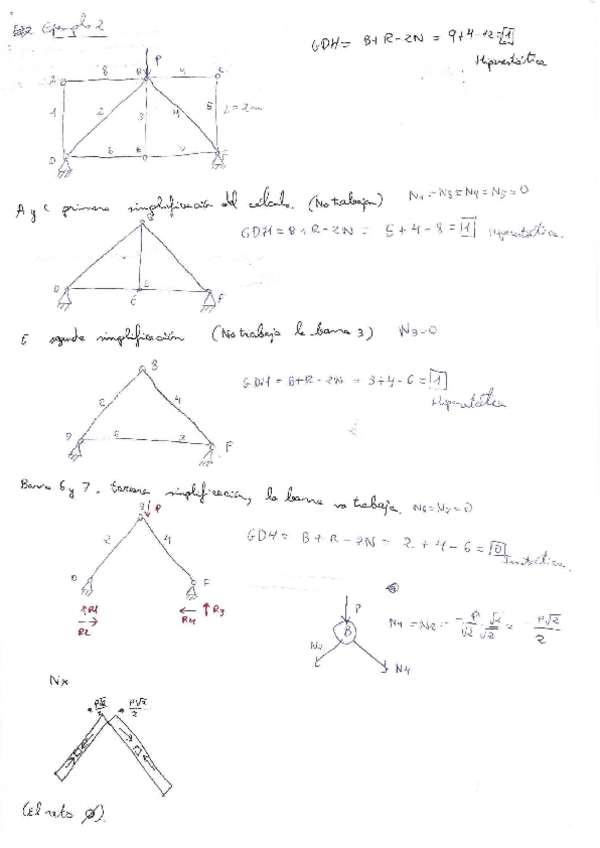 Ejemplo 2
GDH = B+R-2N = 9+4-12=1
Hiperestática
P
8 4 C
1 2 3 4 5 L=2m
6
A y C primera simplificación del cálculo. (No trabajan)
GDH = B+R-2N = 5+4-8=1 Hiperestática.
D E F
E segunda simplificación (No trabaja la barra 3) N3=0
B
2 4
GDH = B+R-2N = 3+4-6=1
Hiperestática
D F
Barra 6 y 7, tercera simplificación, la barra no trabaja. N6=N7=0
B P
2 4
GDH = B+R-2N = 2+4-6=0
Isostática.
D F
R1 R2 R4 R3
P
B
N2 N4
N4 = N2 = -P/√2 · √2/√2 = -P√2/2
Nx
P√2/2 P√2/2
(El resto Ø)